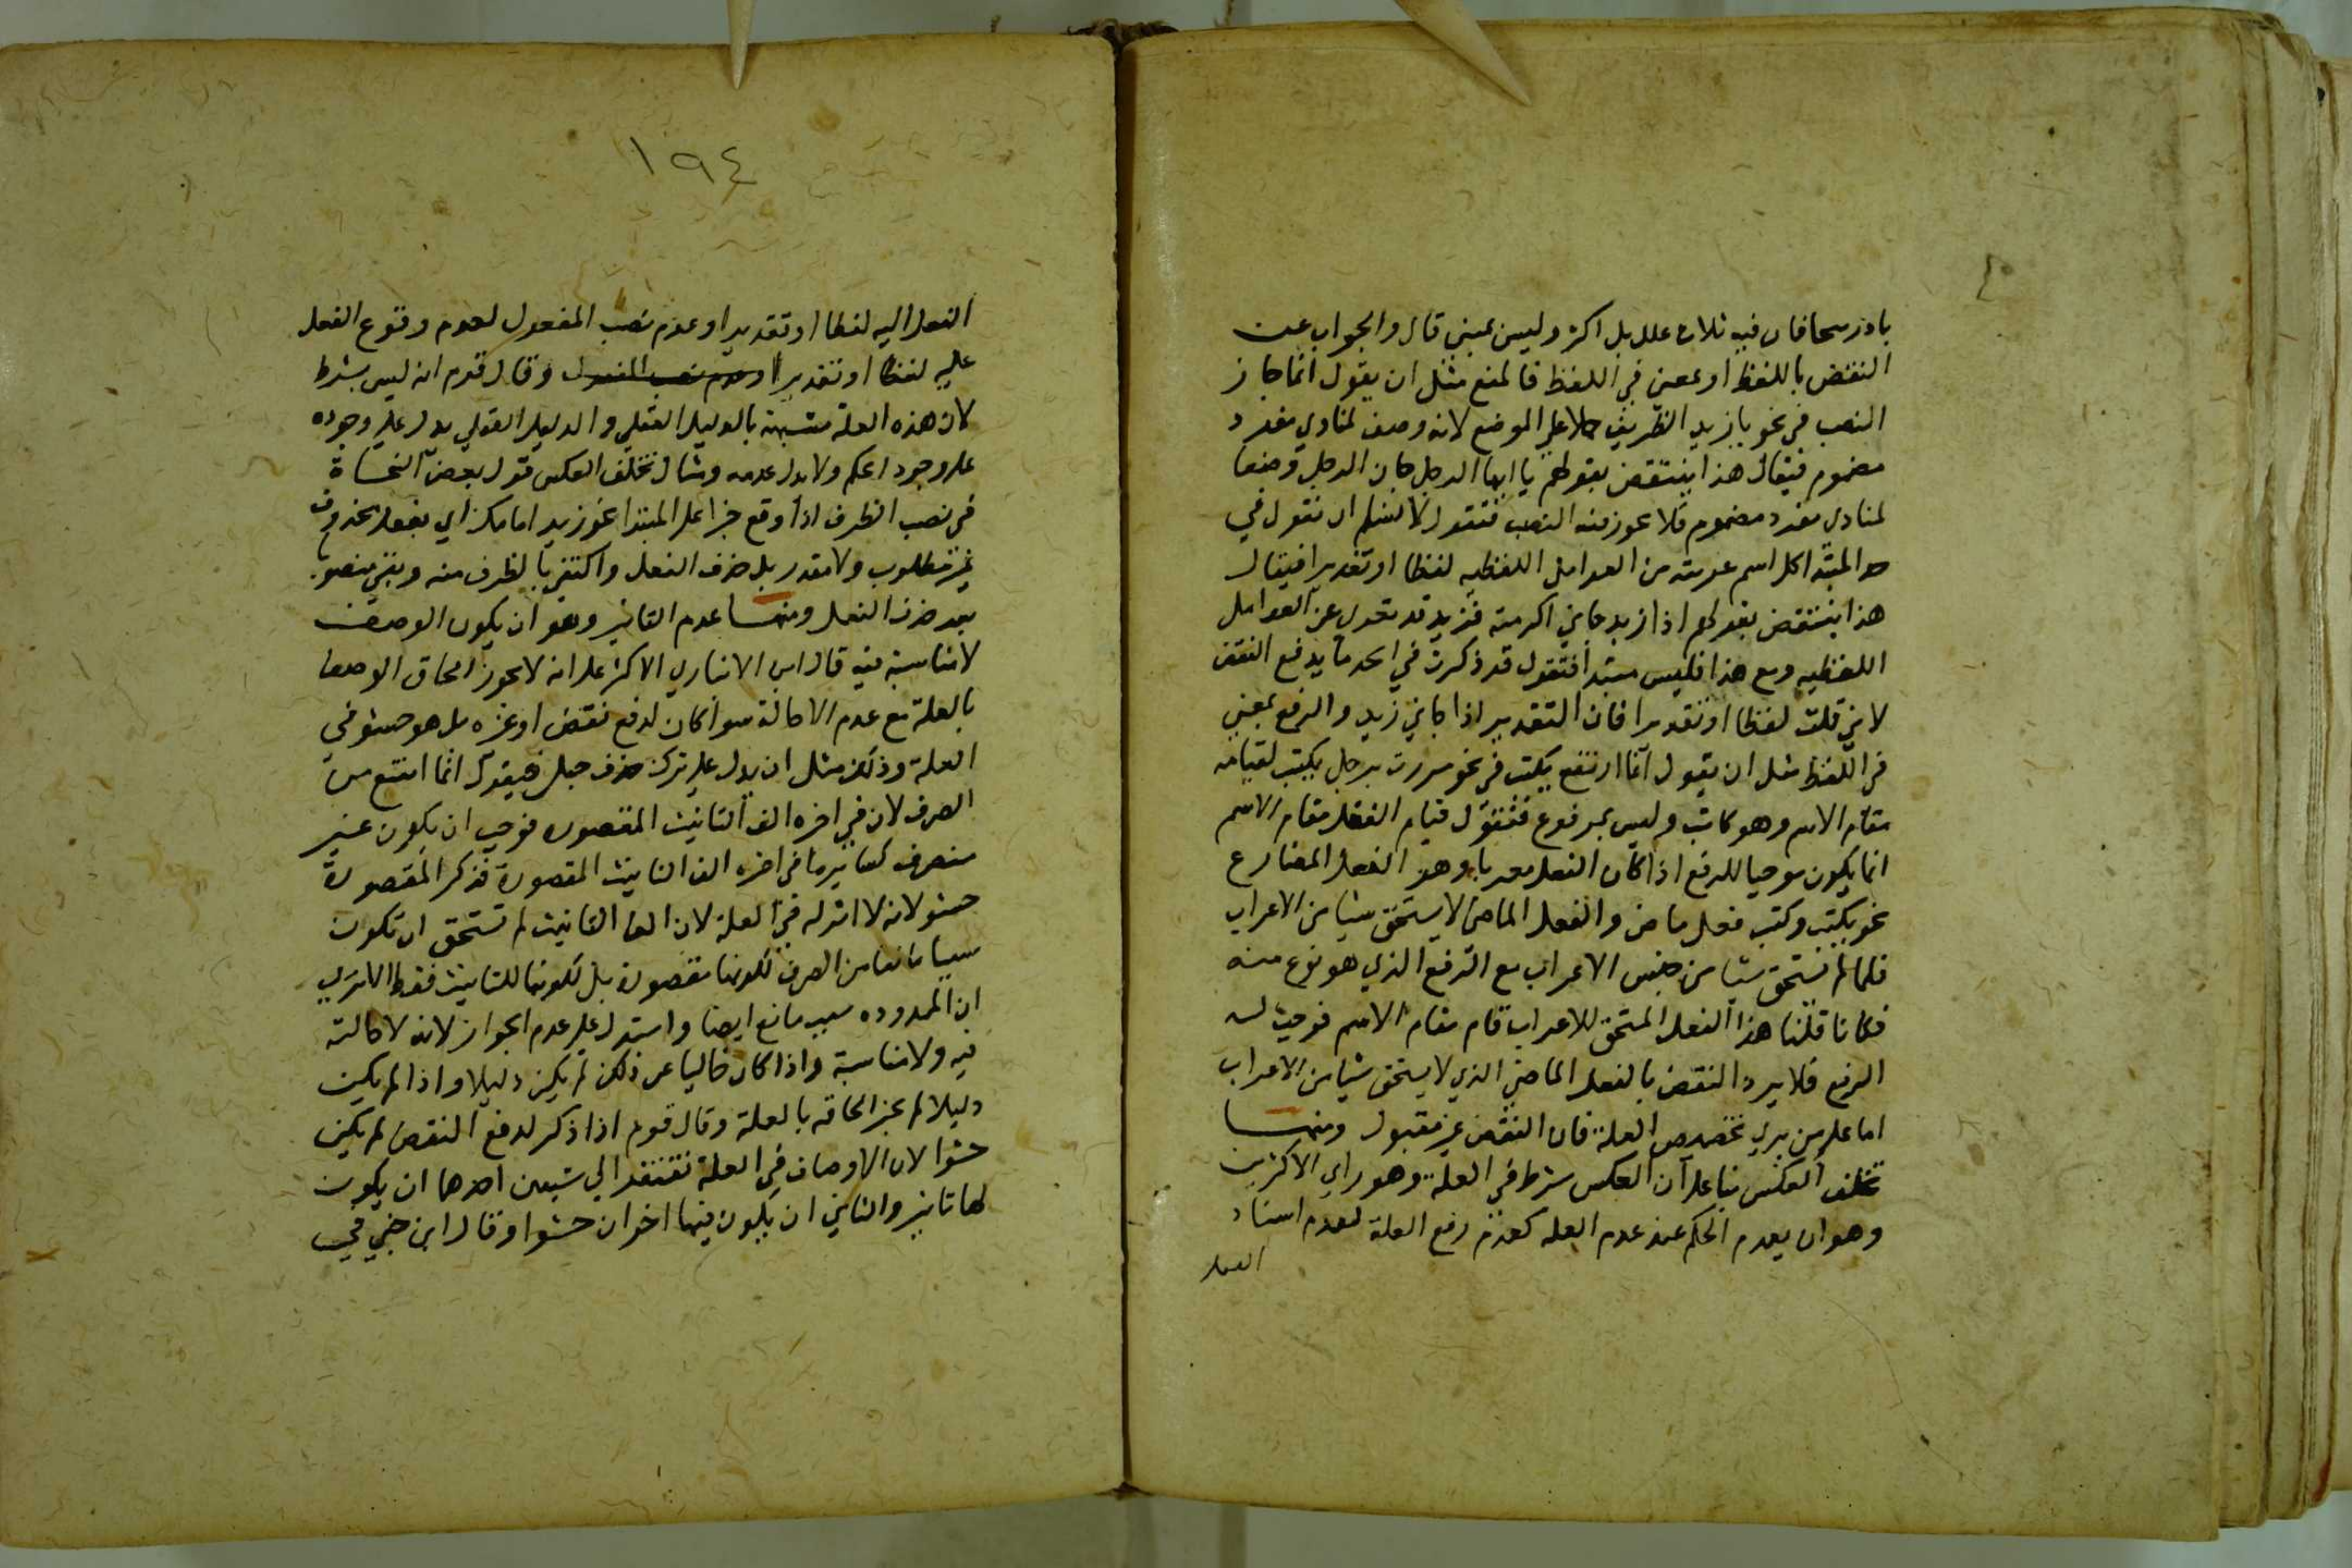 باذربيجان فان فيه ثلاث علل بل اكثر وليس بمبني قال والجواب عن
النقض باللفظ او بمعنى في اللفظ فالمنع مثل ان يقول انما جاز
النصب في نحو يا زيد الظريف حملا على الموضع لانه وصف لمنادي مفرد
مضموم فيقال هذا ينتقض بقولهم يا ايها الرجل فان الرجل وصف
لمنادي مفرد مضموم فلا يجوز فيه النصب فنقول لا نسلم ان نقول في
حد المبتدا كل اسم عريته من العوامل اللفظيه لفظا او تقديرا فيقال
هذا ينتقض بقولهم اذا زيد جاني اكرمته فزيد قد تعري عن العوامل
اللفظيه ومع هذا فليس مبتدا فنقول قد ذكرت في الحد ما يدفع النقض
لاني قلت لفظا او تقديرا فان التقدير اذا جاني زيد والدفع بمعنى
في اللفظ مثل ان يقول انما ارتفع يكتب في نحو مررت برجل يكتب لقيامه
مقام الاسم وهو كاتب وليس بمرفوع فنقول قيام الفعل مقام الاسم
انما يكون موجبا للرفع اذا كان الفعل معربا وهو الفعل المضارع
نحو يكتب وكتب فعل ماض والفعل الماضي لا يستحق شيا من الاعراب
فلما لم يستحق شيا من جنس الاعراب مع الرفع الذي هو نوع منه
فكانا قلنا هذا الفعل المستحق للاعراب قام مقام الاسم فوجب له
الرفع فلا يرد النقض بالفعل الماضي الذي لا يستحق شيا من الاعراب
اما على من يري تخصيص العلة فان النقض غير مقبول ومنها
تخلف العكس بنا على ان العكس شرط في العلة وهو راي الاكثرين
وهو ان يعدم الحكم عند عدم العله كعدم رفع العلة لعدم اسناد
الفعل
١٩٤
الفعل اليه لفظا او تقديرا وعدم نصب المفعول لعدم وقوع الفعل
عليه لفظا او تقديرا وعدم نصب المفعول وقال قوم انه ليس بشرط
لان هذه العلة مشبهة بالدليل العقلي والدليل العقلي يدل على وجوده
على وجود الحكم ولا يدل عدمه ومثال تخلف العكس قول بعض النحاة
في نصب الظرف اذا وقع خبرا على المبتدا نحو زيد امامك اي بفعل محذوف
غير مطلوب ولا مقدر بل حذف الفعل واكتفي بالظرف منه وبقي منصو.
بعد حذف الفعل ومنها عدم التاثير وهو ان يكون الوصف
لا مناسبة فيه قال ابن الانباري الاكثر على انه لا يجوز الحاق الوصف
بالعلة مع عدم الاخالة سوا كان لدفع نقض او غيره بل هو حشو في
العلة وذلك مثل ان يدل على ترك صرف حبلى فيقول انما امتنع من
الصرف لان في اخره الف التانيث المقصوره فوجب ان يكون غير
منصرف كساير ما في اخره الف التانيث المقصورة فذكر المقصورة
حشو لانه لا اثر له في العلة لان الف التانيث لم تستحق ان تكون
سببا مانعا من الصرف لكونها مقصورة بل لكونها للتانيث فقط الا تري
ان الممدوده سبب مانع ايضا واستدل على عدم الجواز لانه لا اخالة
فيه ولا مناسبة واذا كان خاليا عن ذلك لم يكن دليلا واذا لم يكن
دليلا لم يجز الحاقه بالعلة وقال قوم اذا ذكر لدفع النقض لم يكن
حشوا لان الاوصاف في العلة تفتقر الي شيين احدهما ان يكون
لها تاثير والثاني ان يكون فيها اخوان حشوا وقال ابن جني في